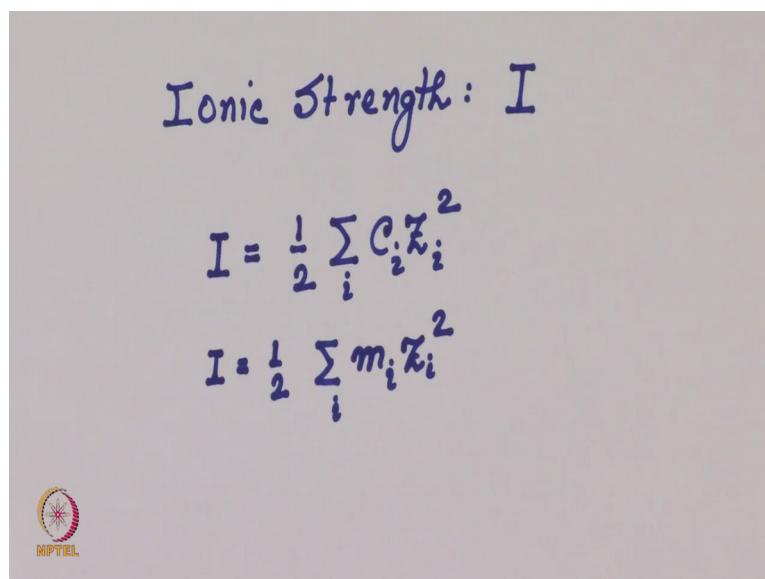 Ionic Strength: I
I = 1/2 ∑_i C_i Z_i^2
I = 1/2 ∑_i m_i Z_i^2
NPTEL